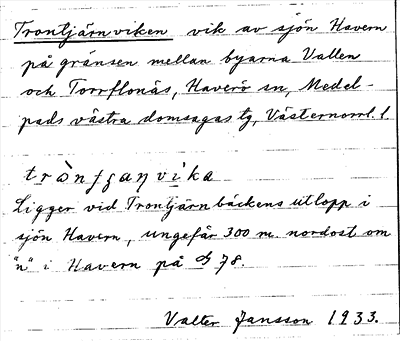 Trontjärnviken vik av sjön Havern
på gränsen mellan byarna Vallen
och Torrflonäs, Haverö sn, Medel-
pads västra domsagas tg, Västernorrl. l.
Ligger vid Trontjärnbäckens utlopp i
sjön Havern, ungefär 300 m. nordost om
"n" i Havern på 78.
Valter Jansson 1933.